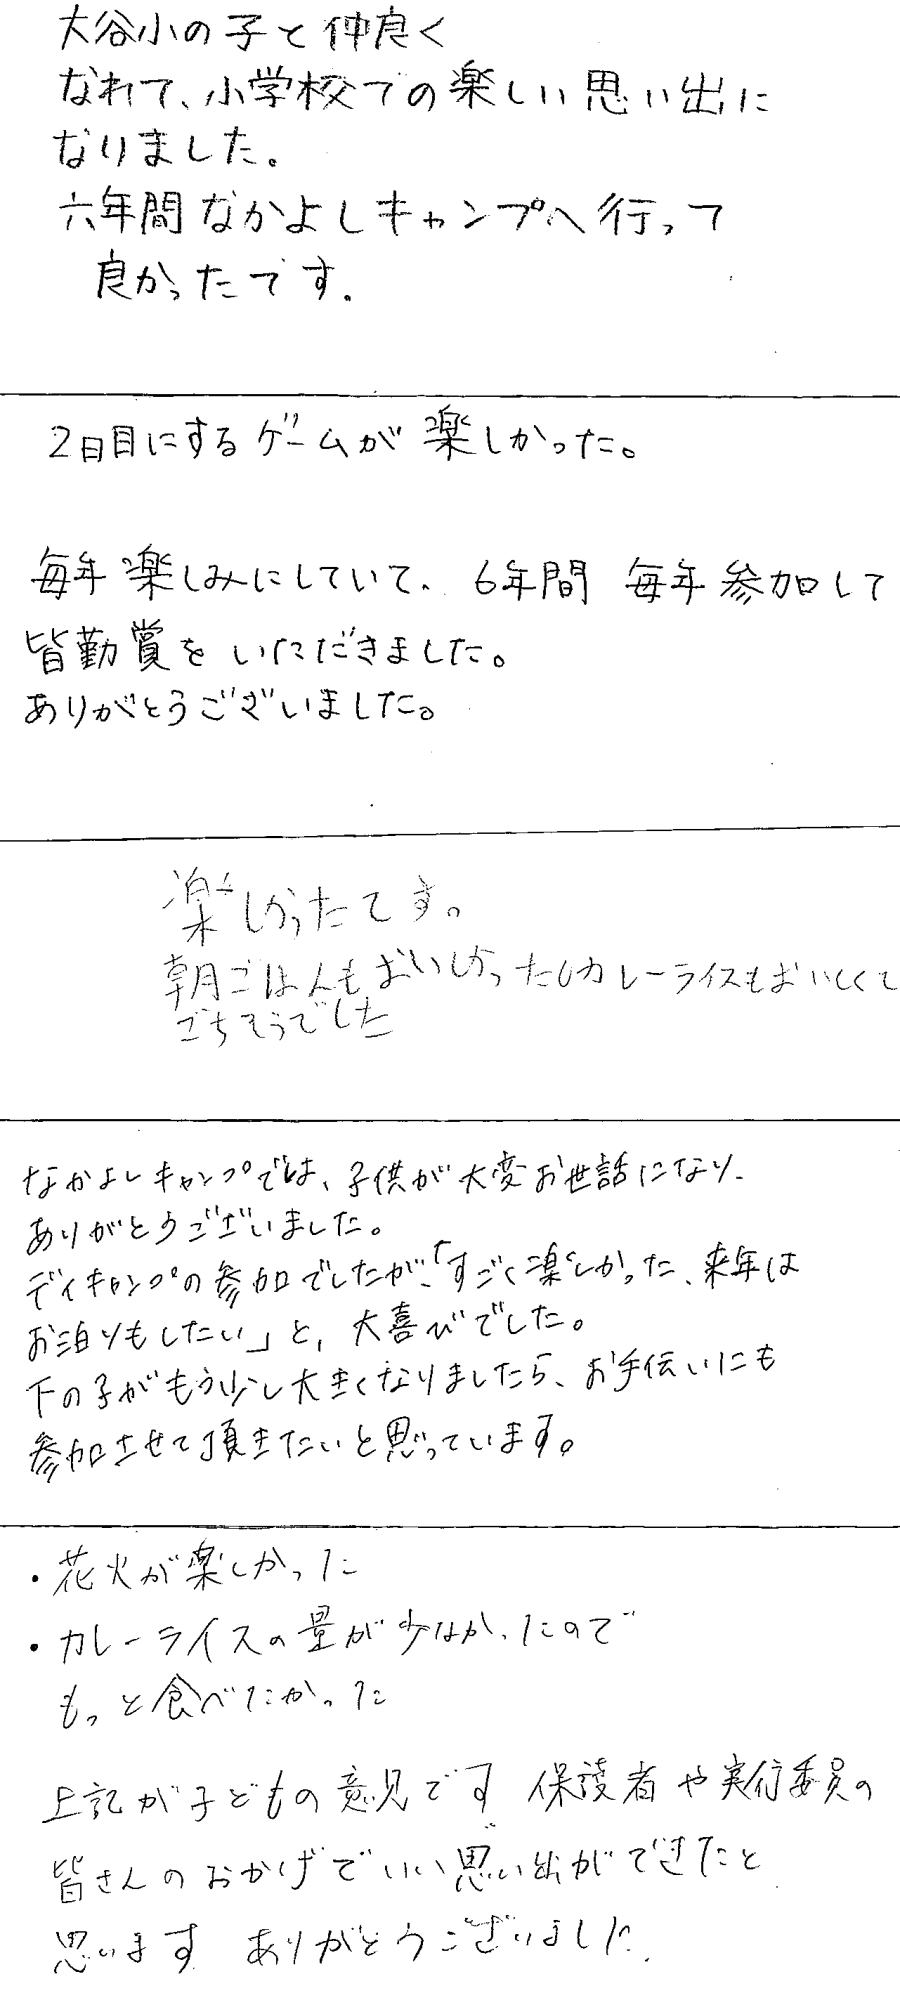 大谷小の子と仲良く
なれて、小学校での楽しい思い出に
なりました。
六年間なかよしキャンプへ行って
良かったです。
2日目にするゲームが楽しかった。
毎年楽しみにしていて、6年間 毎年参加して
皆勤賞をいただきました。
ありがとうございました。
楽しかったてす。
朝ごはんもおいしかったしカレーライスもおいしくて
ごちそうでした
なかよしキャンプでは、子供が大変お世話になり、
ありがとうございました。
デイキャンプの参加でしたが、「すごく楽しかった、来年は
お泊りもしたい」と、大喜びでした。
下の子がもう少し大きくなりましたら、お手伝いにも
参加させて頂きたいと思っています。
・花火が楽しかった
・カレーライスの量が少なかったので
もっと食べたかった
上記が子どもの意見です 保護者や実行委員の
皆さんのおかげでいい思い出ができたと
思います ありがとうございました。